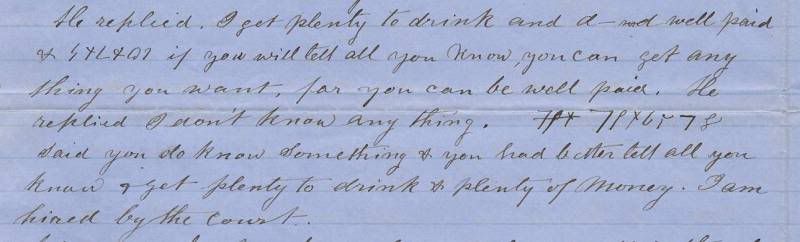 He replied. I get plenty to drink and d—md well paid
& if you will tell all you know, you can get any
thing you want, for you can be well paid. He
replied I don't know any thing.
Said you do know something & you had better tell all you
know & get plenty to drink & plenty of money. I am
hired by the court.